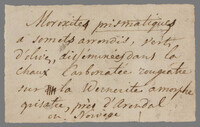 Moroxites prismatiques
a somets arrondis, verts
d'olive, disséminées dans la
chaux carbonatée rougeatre
sur la Wernerite amorphe
grisatre, près d'Arendal
en Norvege